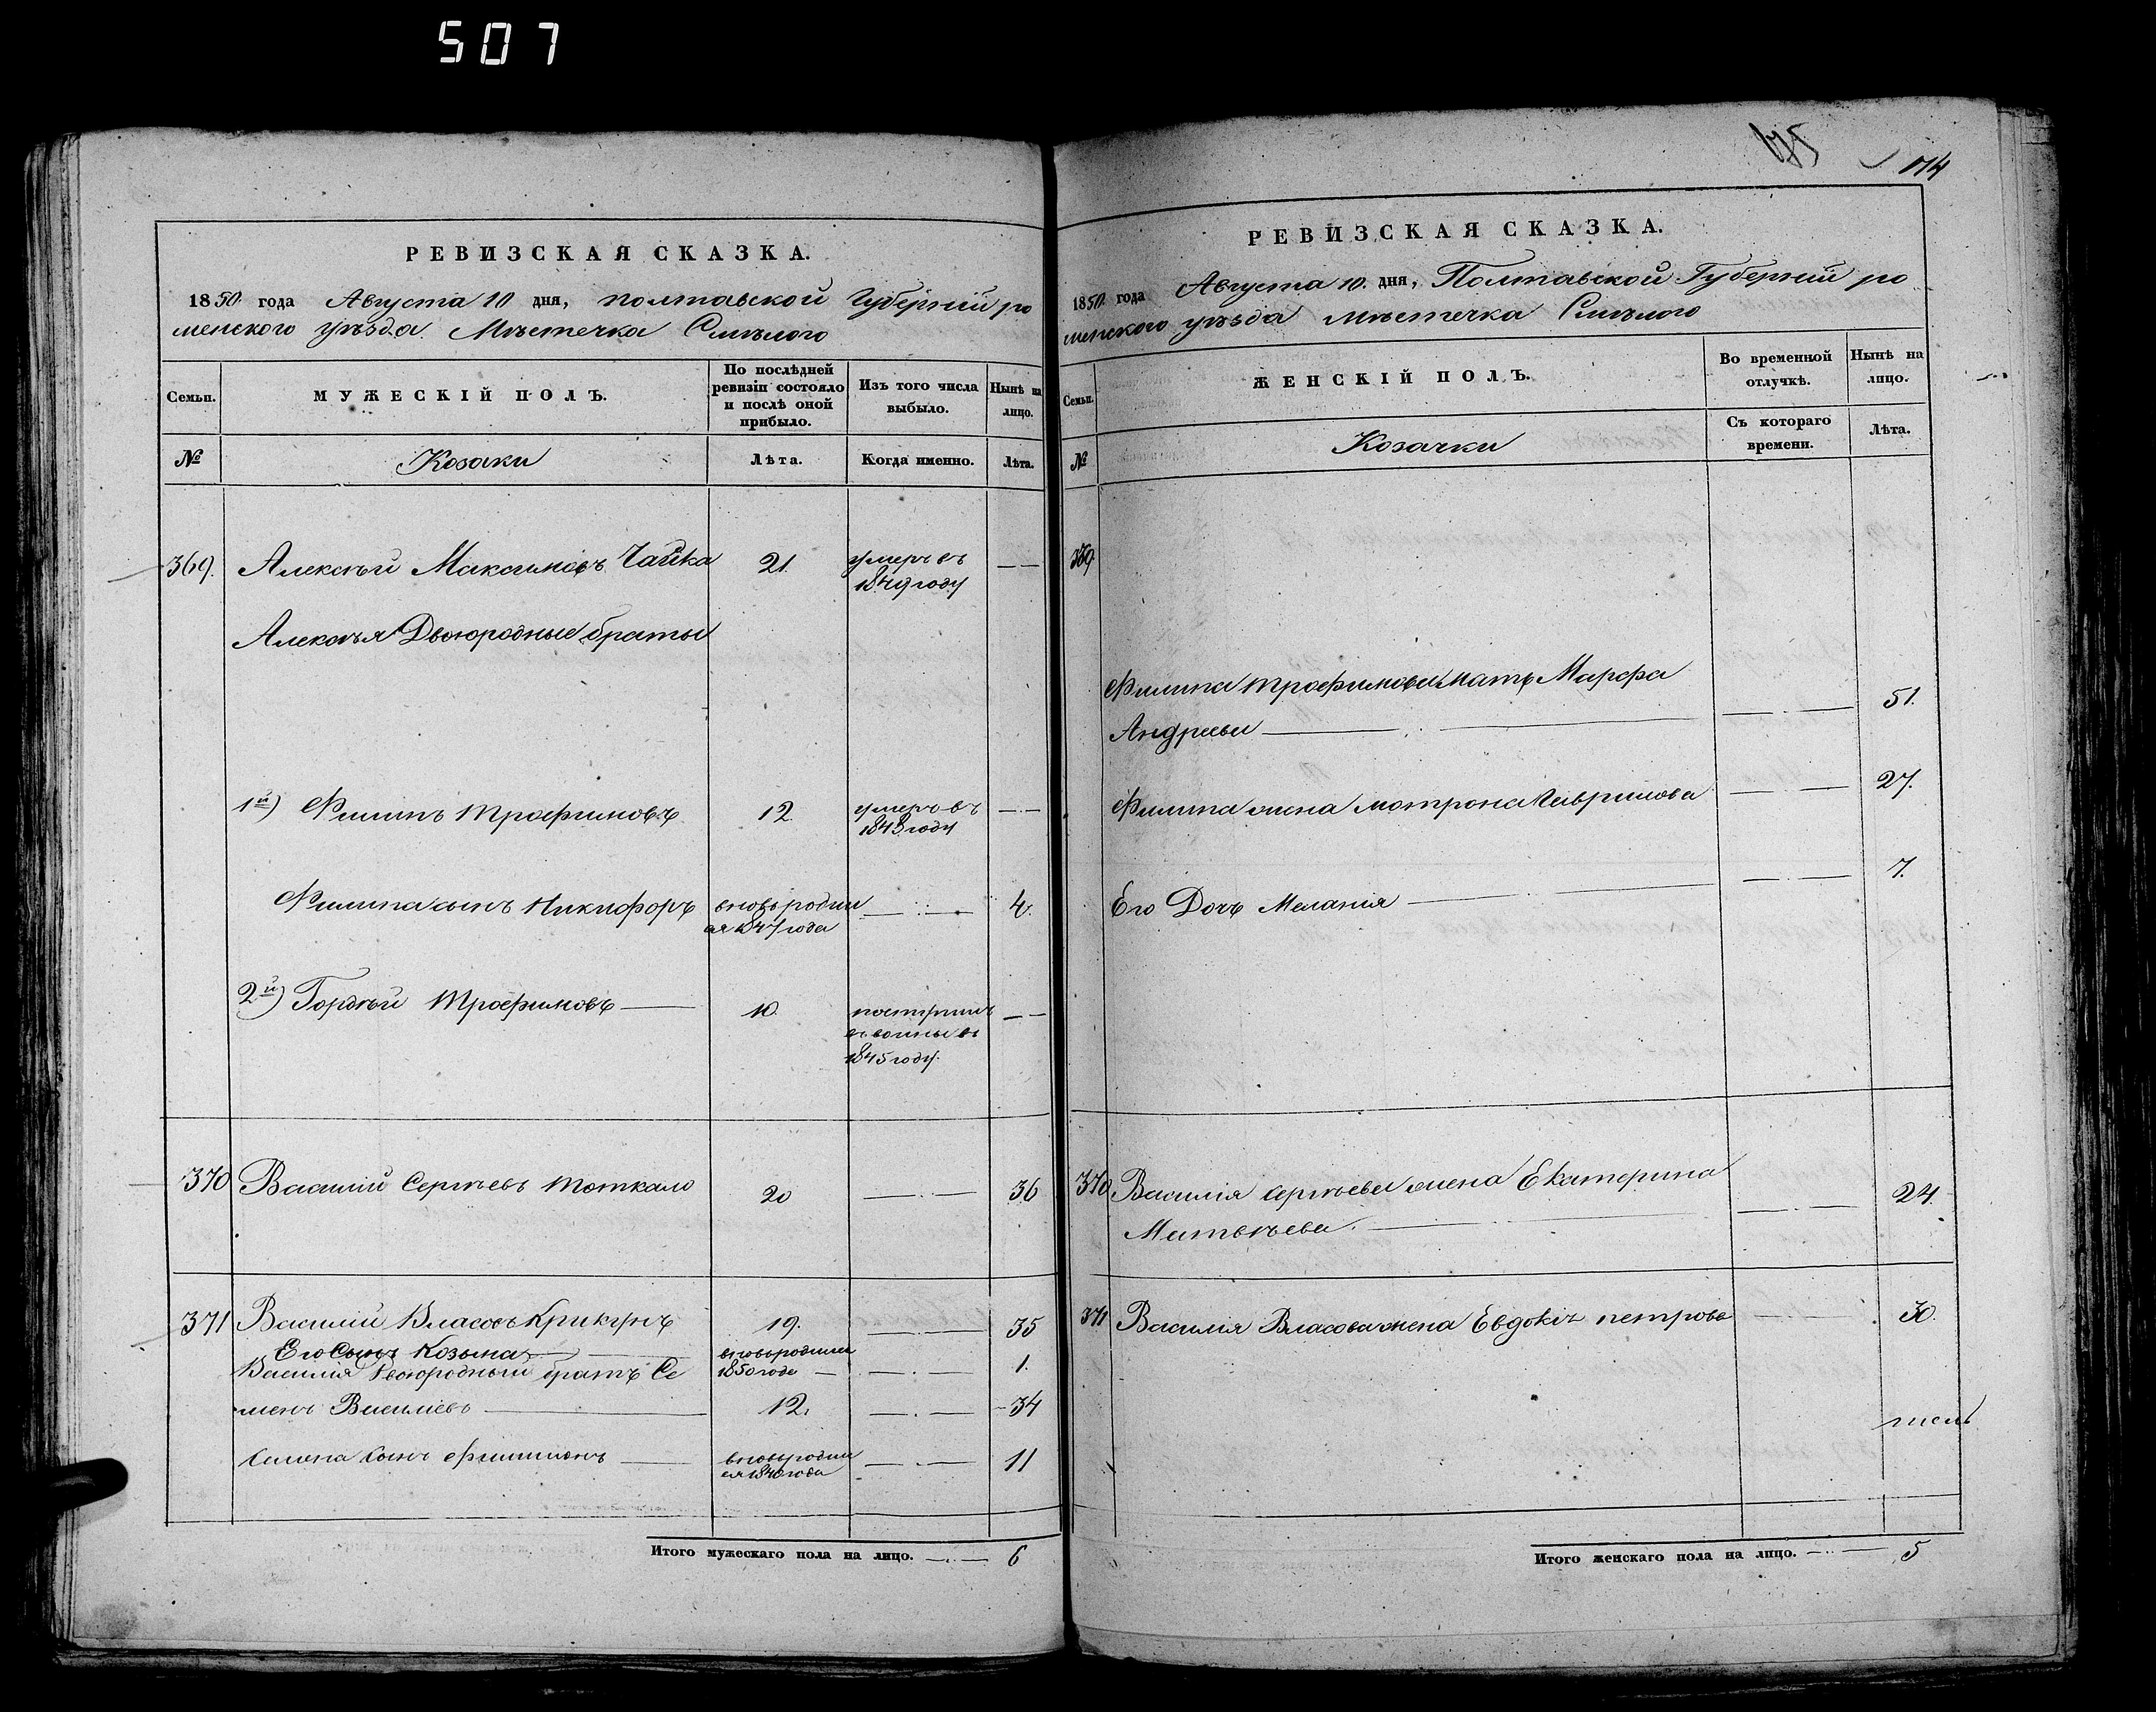 507
РЕВИЗСКАЯ СКАЗКА.
1850 года Августа 10 дня, полтавской Губерніи ро
менского уѣзда Мѣстечка Смѣлого
Семьи.
МУЖЕСКІЙ ПОЛЪ.
По послѣдней
ревизіи состояло
и послѣ оной
прибыло.
Изъ того числа
выбыло.
Нынѣ на
лицо.
№
Козаки
Лѣта.
Когда именно.
Лѣта.
369. Алексѣй Максимовъ Чайка 21. умеръ въ
1849 году
Алексѣя Двоюродные браты
1й) Филипъ трофимовъ 12. умеръ въ
1848 году
Филипа сынъ Никифоръ вновь родил 4.
ся 1847 года
2й) Гордѣй трофимовъ 10.
въ
1845 году.
370 Василій Сергѣевъ Моткало 20 36
371 Василій Власовъ Крикунъ 19. 35
Его Сынъ Козьма вновь родился
Василія Двоюродный братъ Се 1850 года 1.
менъ Василіевъ 12. 34
Семена Сынъ вновь родил 11
ся 1840 года
Итого мужескаго пола на лицо. 6
175 174
РЕВИЗСКАЯ СКАЗКА.
1850 года Августа 10. дня, Полтавской Губерніи ро
менского уѣзда мѣстечка Смѣлого
Семьи.
ЖЕНСКІЙ ПОЛЪ.
Во временной
отлучкѣ.
Нынѣ на
лицо.
№
Козачки
Съ котораго
времени.
Лѣта.
369.
Филипа трофимова мать Марфа
Андреева 51.
Филипа жена мотрона Гаврилова 27.
Его Дочь Меланія 7.
370 Василія Сергѣева жена Екатерина 24.
Матвѣева
371 Василія Власова жена Евдокія петрова 30.
Итого женскаго пола на лицо. 5